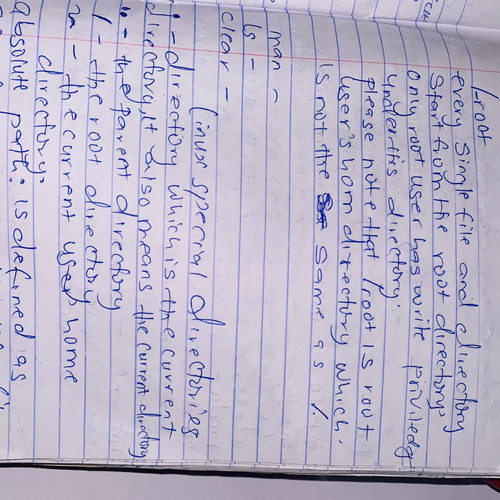 /root
every single file and directory
start from the root directory.
only root user has write priviledge
under this directory.
please note that /root is root
user's hom directory which.
is not the same as /.
man -
ls -
clear -
Linux special directories
. - directory which is the current
directory, it also means the current directory
.. - the parent directory
/ - the root directory
- the current user home
directory.
absolute path: is defined as